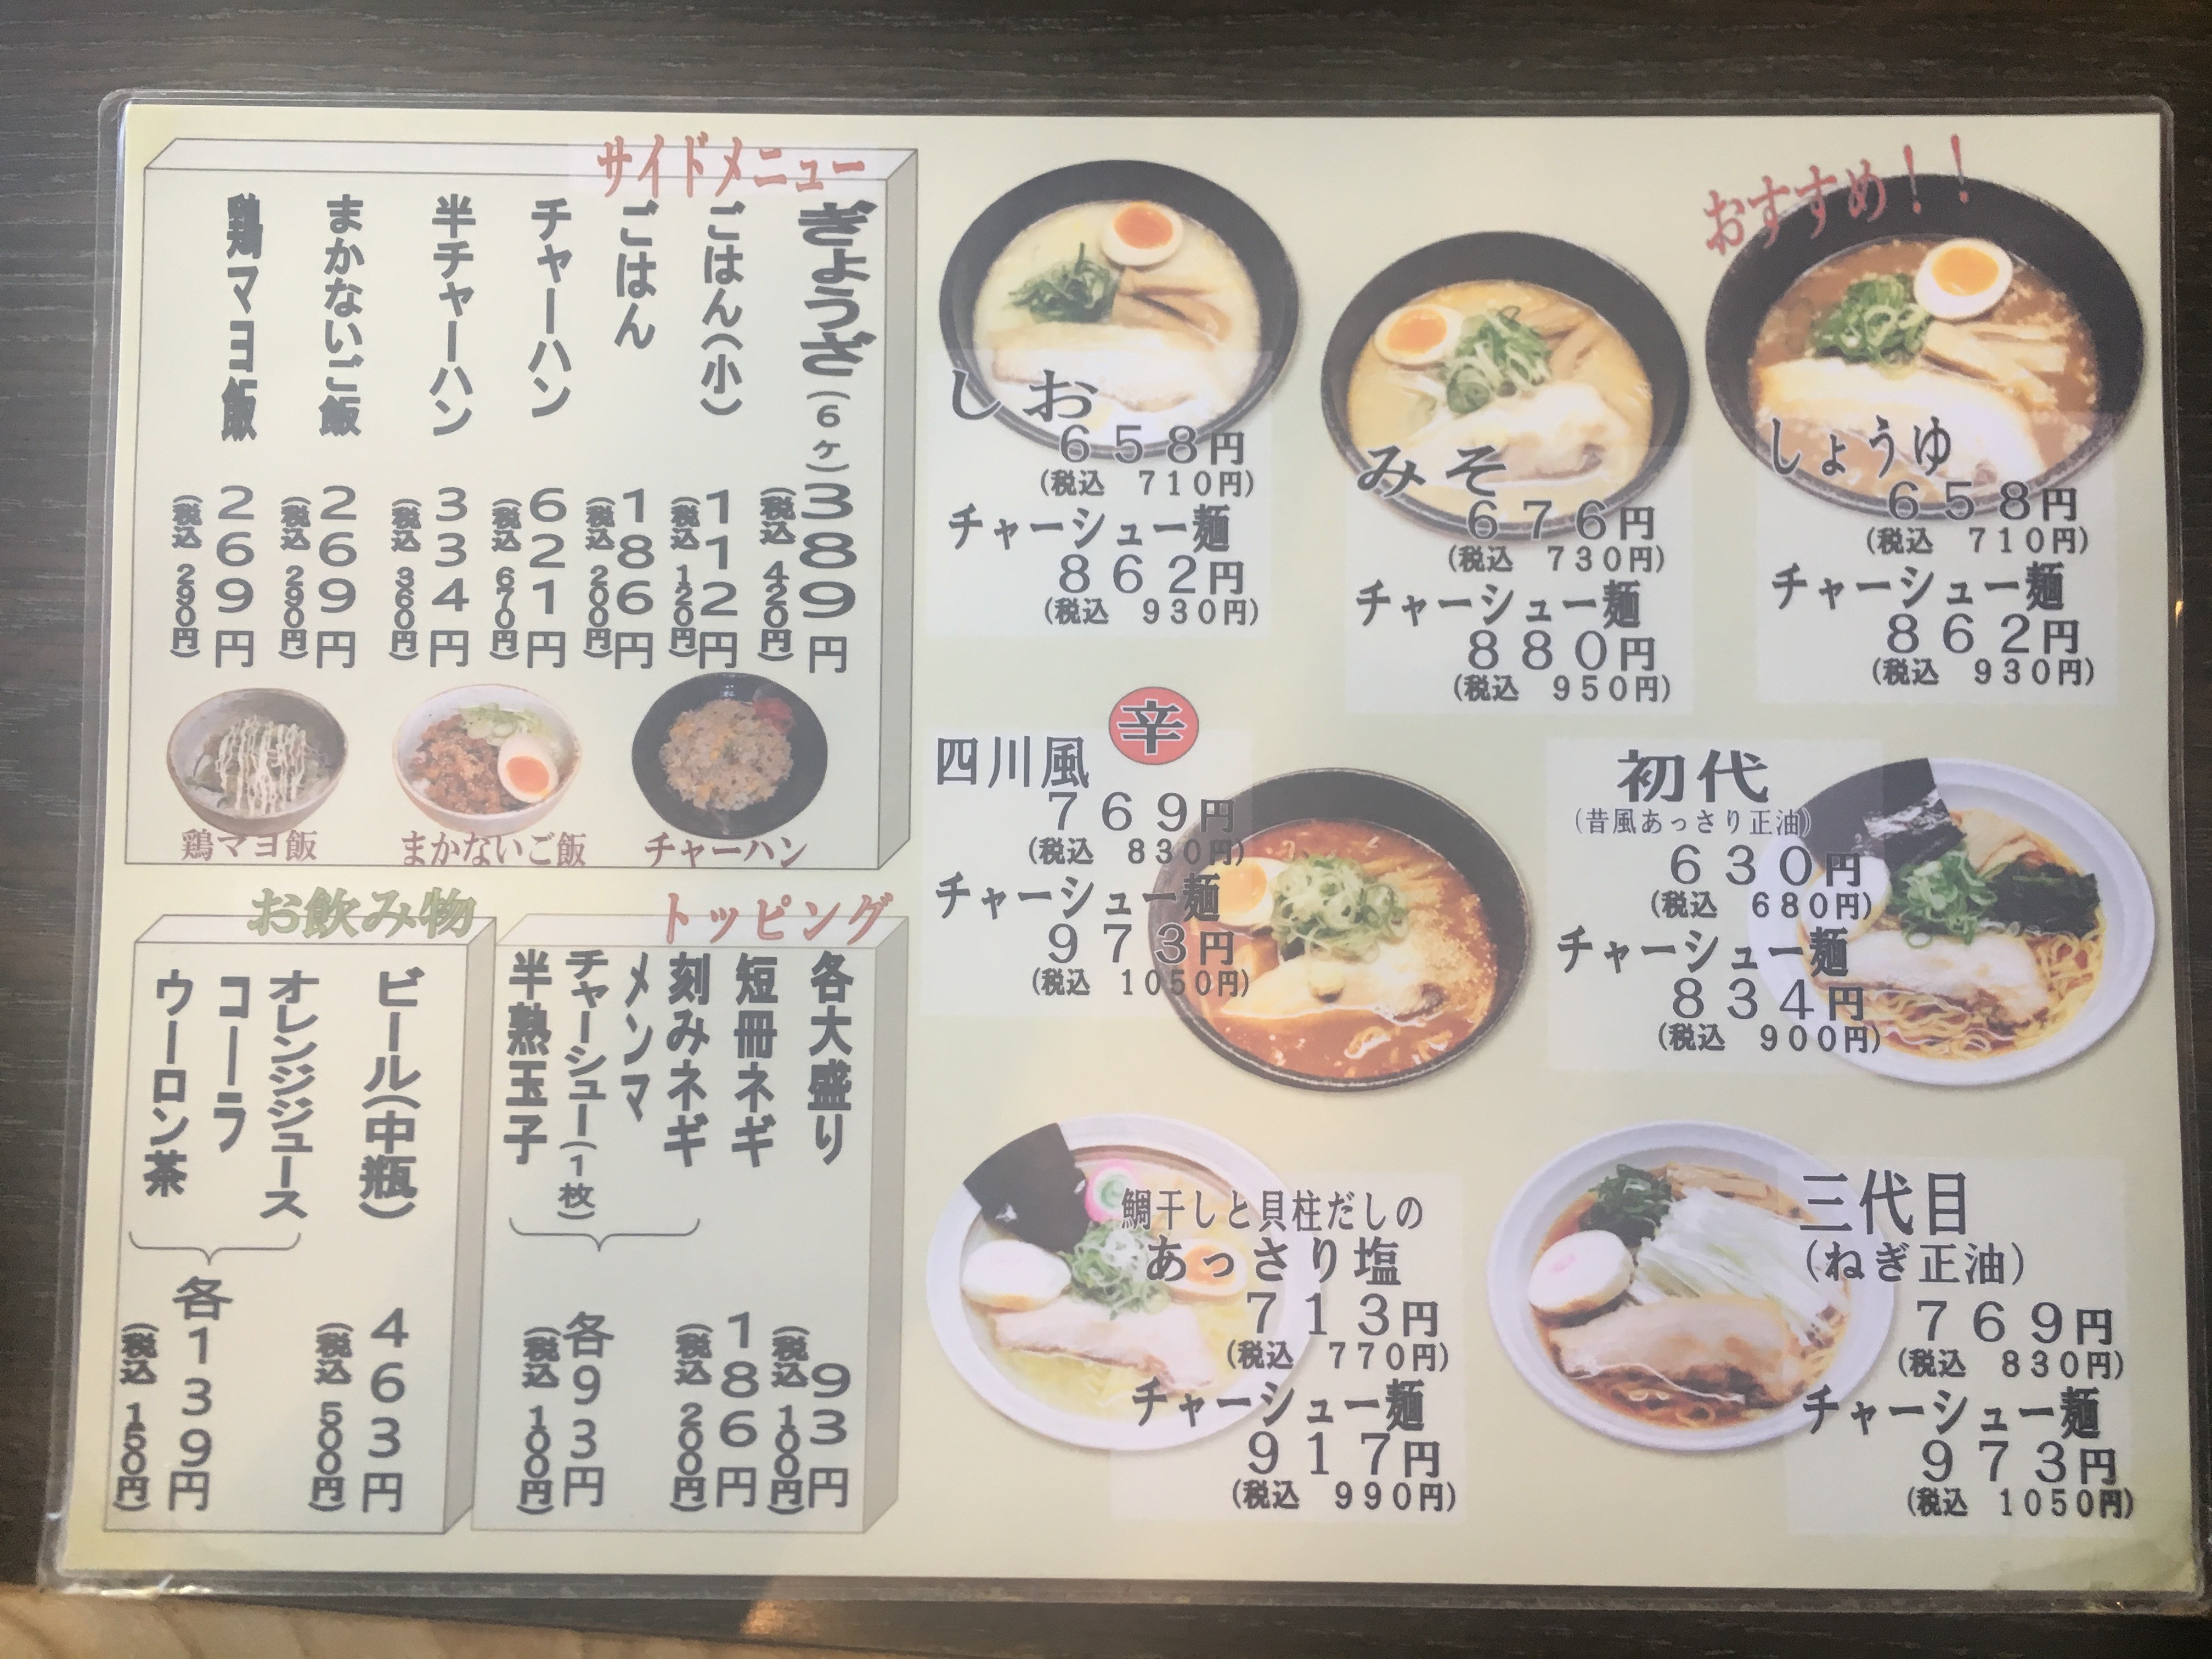 おすすめ！！
しょうゆ
６５８円
(税込　７１０円)
チャーシュー麺
８６２円
(税込　９３０円)
みそ
６７６円
(税込　７３０円)
チャーシュー麺
８８０円
(税込　９５０円)
しお
６５８円
(税込　７１０円)
チャーシュー麺
８６２円
(税込　９３０円)
初代
(昔風あっさり正油)
６３０円
(税込　６８０円)
チャーシュー麺
８３４円
(税込　９００円)
辛
四川風
７６９円
(税込　８３０円)
チャーシュー麺
９７３円
(税込　１０５０円)
三代目
(ねぎ正油)
７６９円
(税込　８３０円)
チャーシュー麺
９７３円
(税込　１０５０円)
鯛干しと貝柱だしの
あっさり塩
７１３円
(税込　７７０円)
チャーシュー麺
９１７円
(税込　９９０円)
サイドメニュー
ぎょうざ(６ヶ)３８９円
(税込　４２０円)
ごはん(小)　１１２円
(税込　１２０円)
ごはん　１８６円
(税込　２００円)
チャーハン　６２１円
(税込　６７０円)
半チャーハン　３３４円
(税込　３６０円)
まかないご飯　２６９円
(税込　２９０円)
鶏マヨ飯　２６９円
(税込　２９０円)
鶏マヨ飯
まかないご飯
チャーハン
トッピング
各大盛り　９３円
(税込　１００円)
短冊ネギ　１８６円
(税込　２００円)
刻みネギ
メンマ
チャーシュー(１枚)
半熟玉子
各９３円
(税込　１００円)
お飲み物
ビール(中瓶)　４６３円
(税込　５００円)
オレンジジュース
コーラ
ウーロン茶
各１３９円
(税込　１５０円)